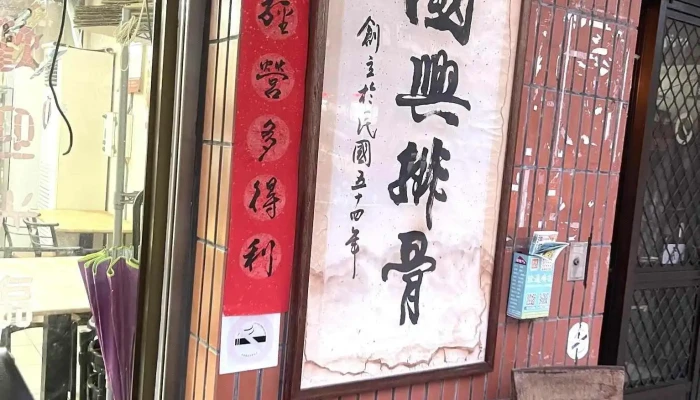 國興排骨
創立於民國五十四年
經營多得利
歡迎光